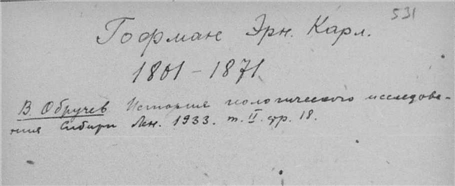 531
Гофман Эрн. Карл.
1801-1871
В. Обручев История геологического исследова-
ния Сибири Лен. 1933. т. II. стр. 18.